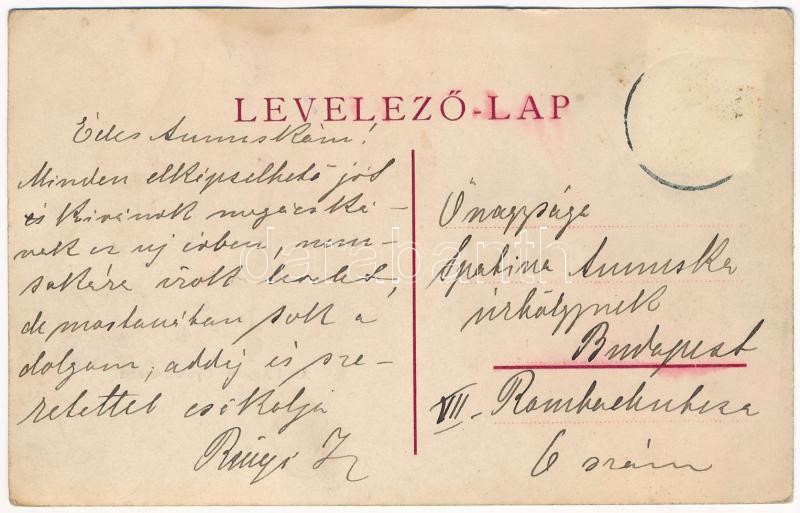 LEVELEZŐ-LAP
Édes Annuskám!
Minden elképzelhető jót
és kívánok magácská-
nak ez új évben, nem-
sokára írok levelet,
de mostanában sok a
dolgom, addig is sze-
retettel csókolja
Őnagysága
Annuska
úrhölgynek
Budapest
VII. Rombachutcza
6 szám
darabanth